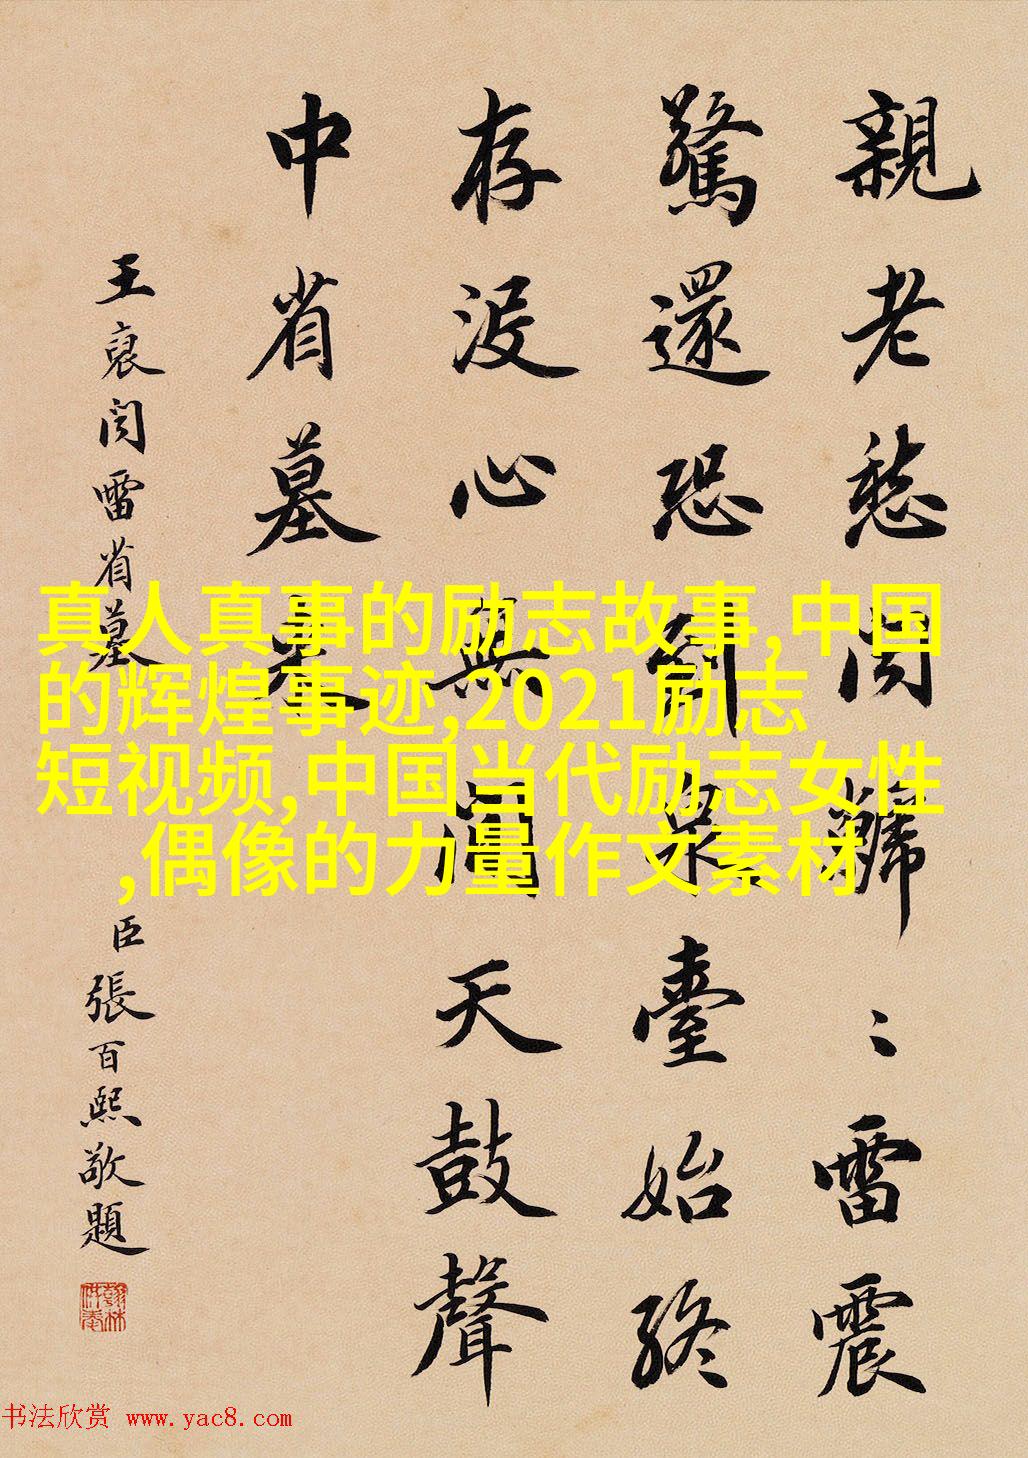 親老愁聞〻雷震
驚還恐到泉臺始終
存沒心無間天鼓聲
中省墓來
王裒聞雷省墓
臣張百熙敬題
翰林供奉
真人真事的励志故事,中国
的辉煌事迹,2021励志
短视频,中国当代励志女性
,偶像的力量作文素材
书法欣赏 www.yac8.com